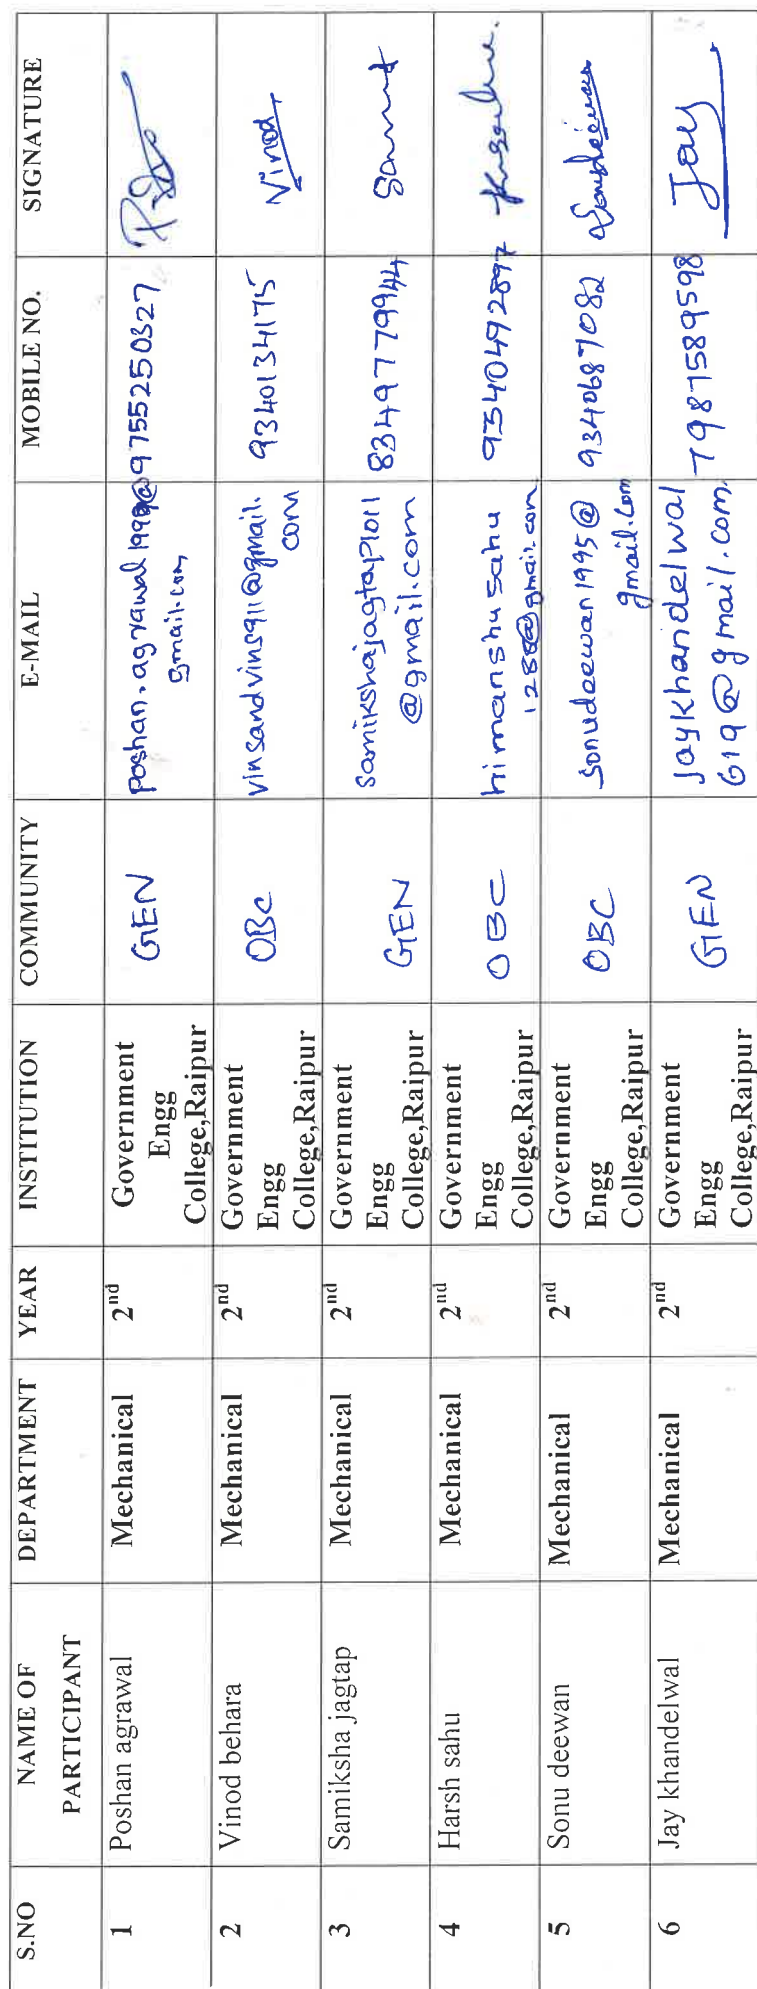 S.NO NAME OF PARTICIPANT DEPARTMENT YEAR INSTITUTION COMMUNITY E-MAIL MOBILE NO. SIGNATURE
1 Poshan agrawal Mechanical 2nd Government Engg College,Raipur GEN poshan.agrawal1998@gmail.com 9755250327
2 Vinod behara Mechanical 2nd Government Engg College,Raipur OBC vinsandvins911@gmail.com 9340134175 Vinod
3 Samiksha jagtap Mechanical 2nd Government Engg College,Raipur GEN samikshajagtap1011@gmail.com 8349779944
4 Harsh sahu Mechanical 2nd Government Engg College,Raipur OBC himanshusahu1288@gmail.com 9340492897
5 Sonu deewan Mechanical 2nd Government Engg College,Raipur OBC sonudeewan1995@gmail.com 9340687082 Sonudeewan
6 Jay khandelwal Mechanical 2nd Government Engg College,Raipur GEN jaykhandelwal619@gmail.com 7987589598 Jay